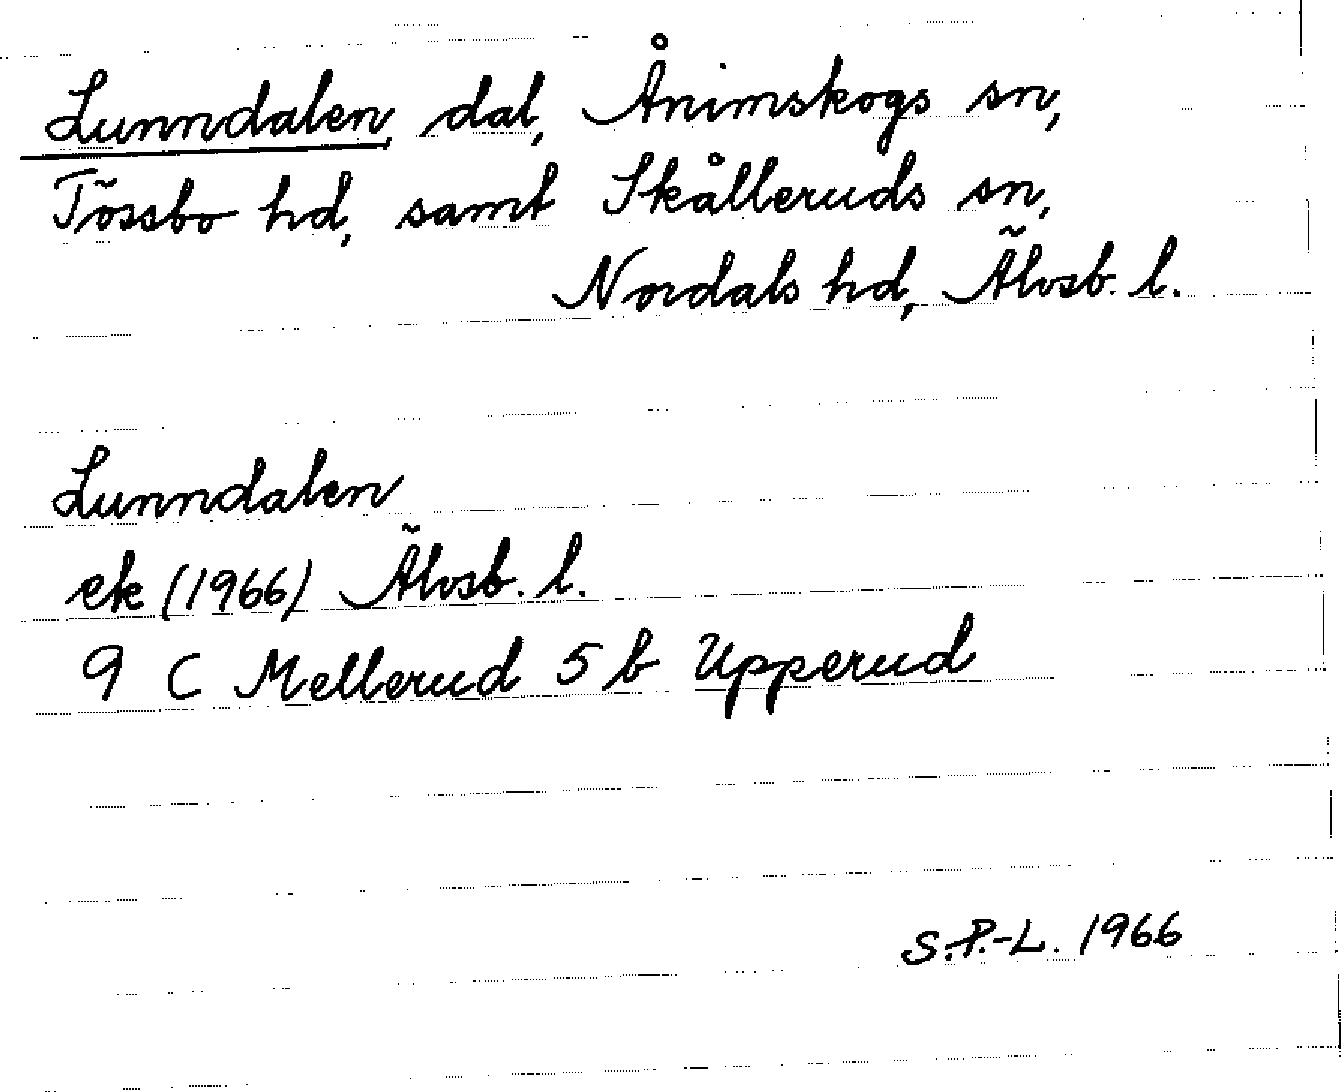 Lunndalen, dal, Ånimskogs sn,
Tössbo hd, samt Skålleruds sn,
Nordals hd, Älvsb. l.
Lunndalen
ek (1966) Älvsb. l.
9 C Mellerud 5 b Upperud
S.P.-L. 1966